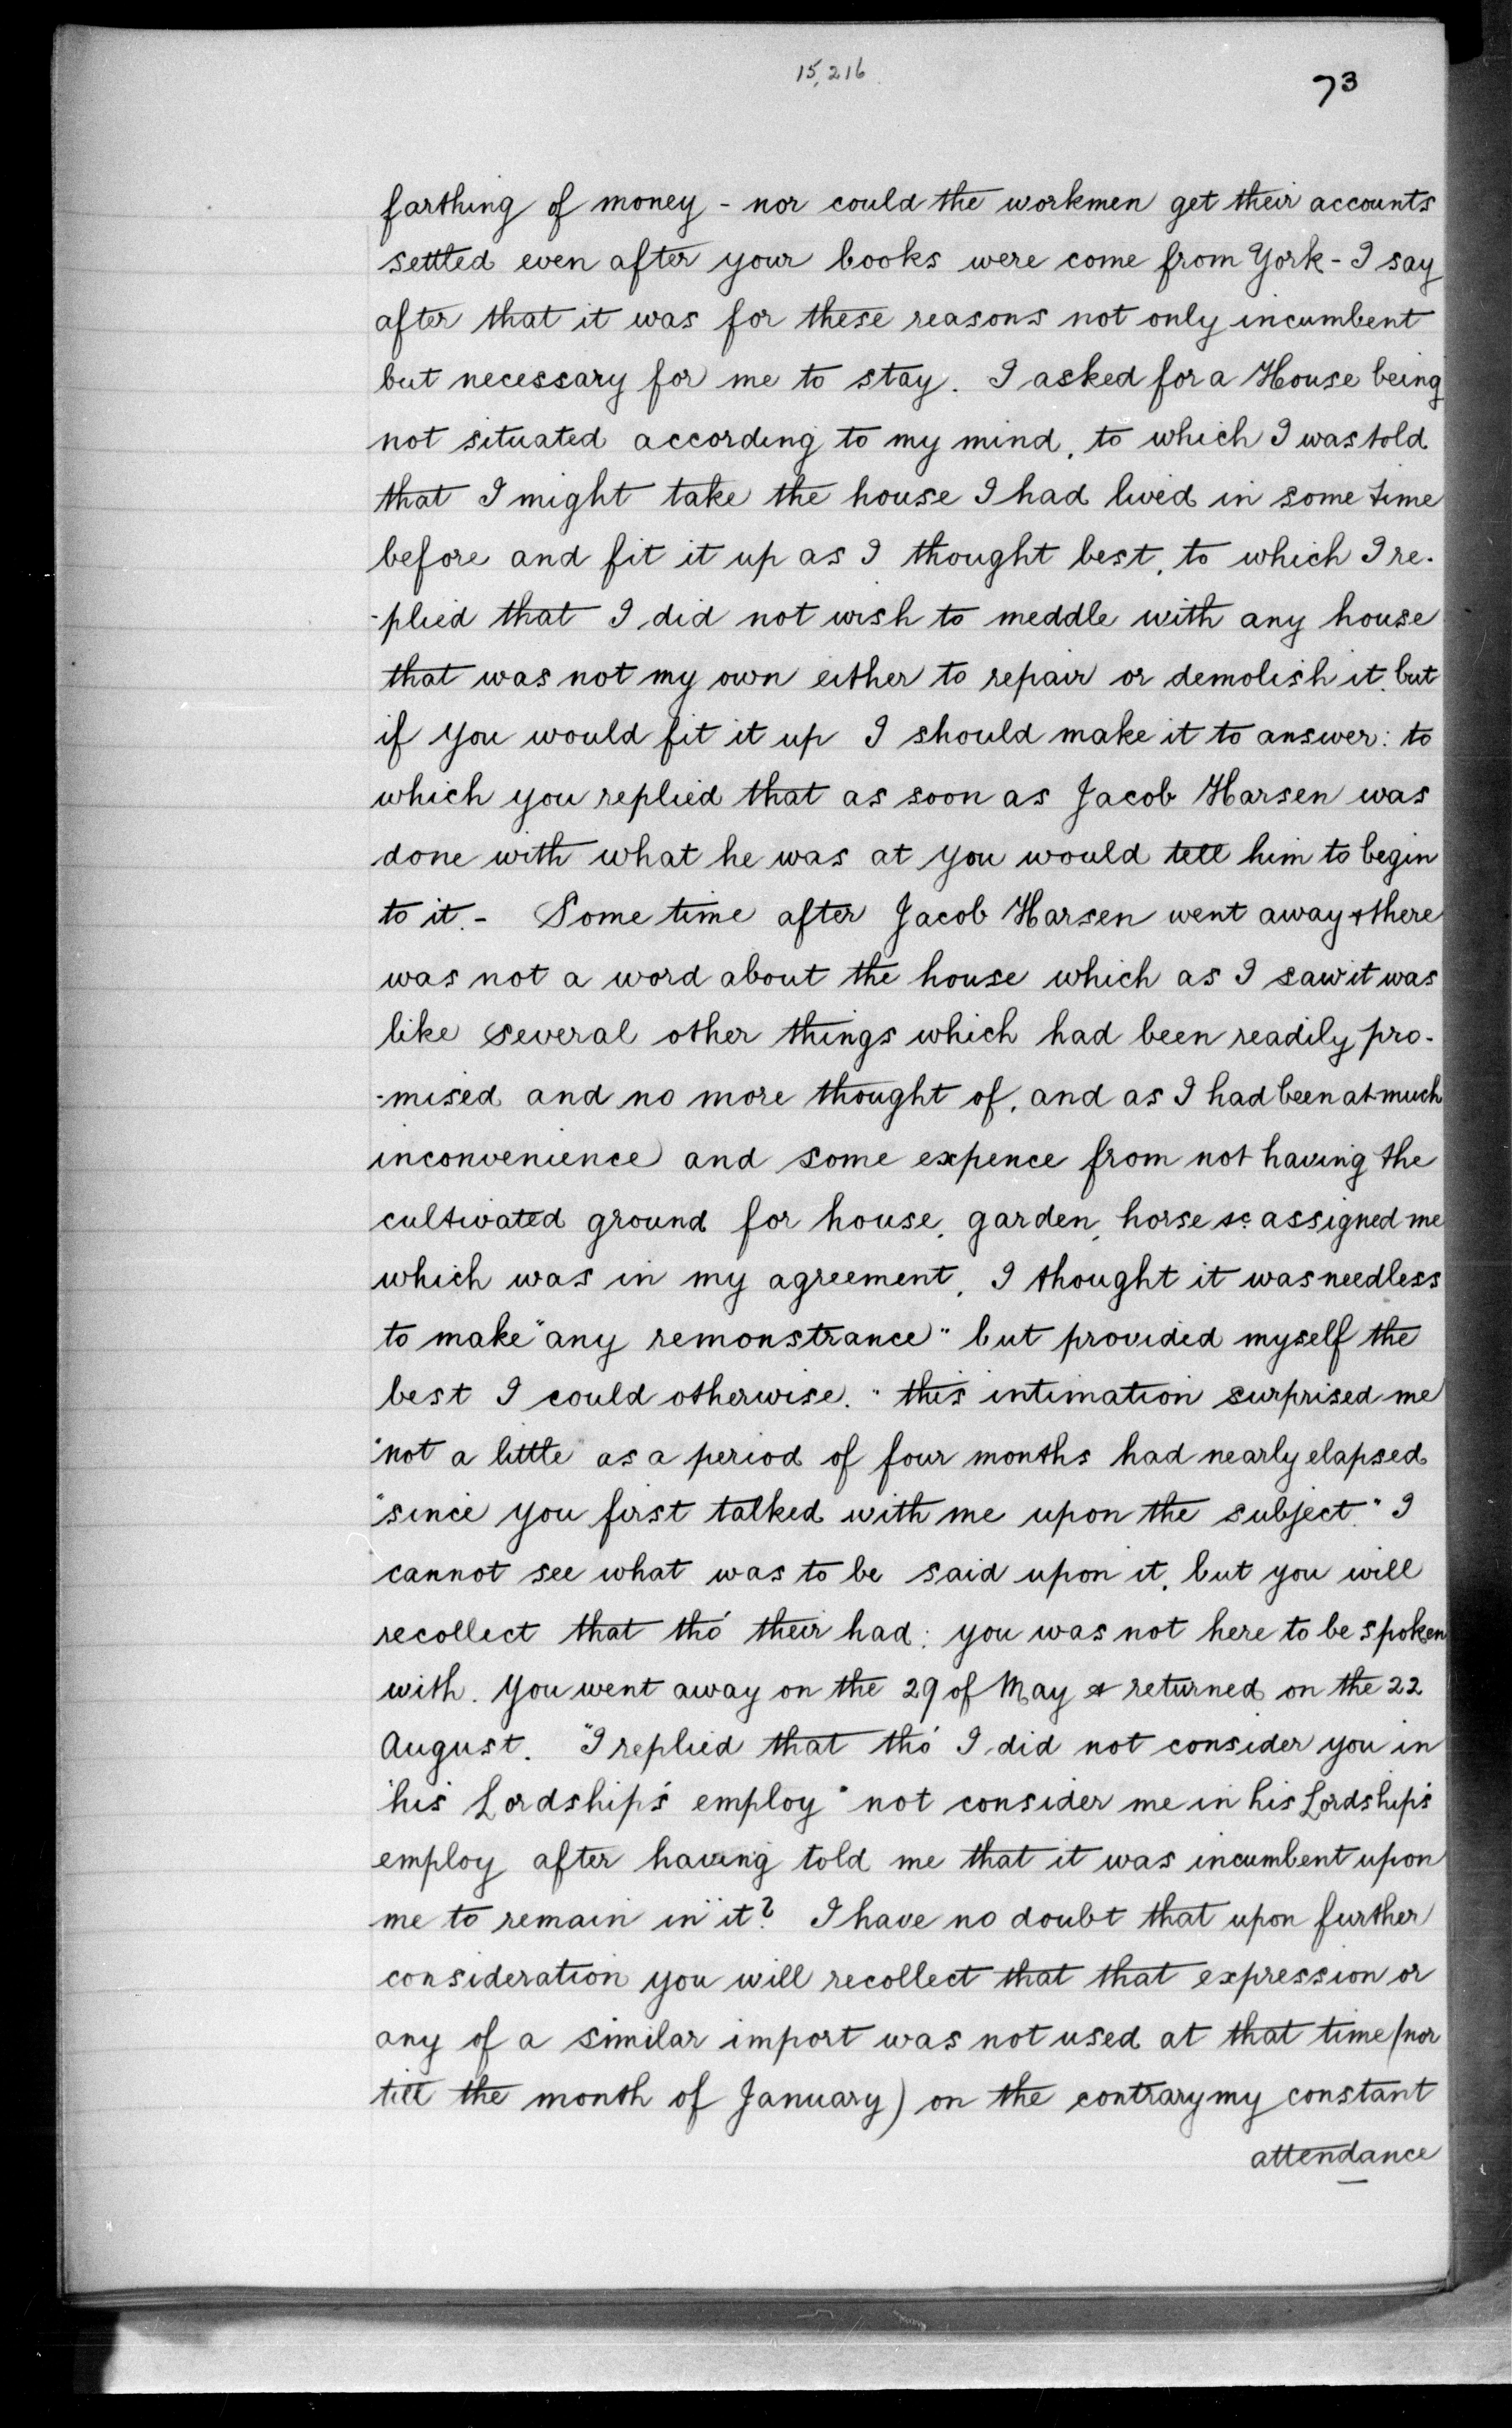 15,216
73
farthing of money - nor could the workmen get their accounts
settled even after your books were come from York - I say
after that it was for these reasons not only incumbent
but necessary for me to stay. I asked for a House being
not situated according to my mind, to which I was told
that I might take the house I had lived in some time
before and fit it up as I thought best, to which I re-
-plied that I did not wish to meddle with any house
that was not my own either to repair or demolish it, but
if you would fit it up I should make it to answer: to
which you replied that as soon as Jacob Harsen was
done with what he was at you would tell him to begin
to it. - Some time after Jacob Harsen went away & there
was not a word about the house which as I saw it was
like several other things which had been readily pro-
-mised and no more thought of, and as I had been at much
inconvenience and some expence from not having the
cultivated ground for house, garden, horse &c assigned me
which was in my agreement, I thought it was needless
to make "any remonstrance" but provided myself the
best I could otherwise. "this intimation surprised me
"not a little" as a period of four months had nearly elapsed
"since you first talked with me upon the subject." I
cannot see what was to be said upon it, but you will
recollect that tho' their had; you was not here to be spoken
with. You went away on the 29 of May & returned on the 22
August. "I replied that tho' I did not consider you in
"his Lordship's employ" not consider me in his Lordship's
employ after having told me that it was incumbent upon
me to remain in "it? I have no doubt that upon further
consideration you will recollect that that expression or
any of a similar import was not used at that time (nor
till the month of January) on the contrary my constant
attendance